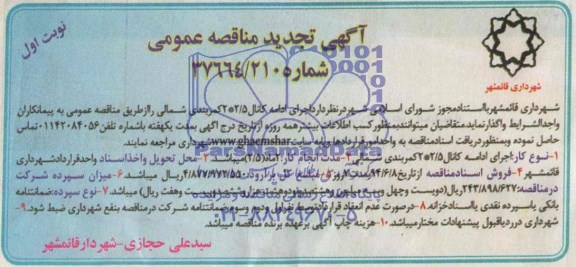 نوبت اول
آگهی تجدید مناقصه عمومی
شماره ۳۷۶۶۴/۲۱۰
شهرداری قائمشهر
شهرداری قائمشهربااستنادمجوز شورای اسلامی شهردرنظردارداجرای ادامه کانال ۲/۵*۲کمربندی شمالی راازطریق مناقصه عمومی به پیمانکاران
واجدالشرایط واگذارنماید.متقاضیان میتوانندبمنظورکسب اطلاعات بیشترهمه روزه ازتاریخ درج آگهی بمدت یکهفته باشماره تلفن۰۱۱۴۲۰۸۴۰۵۶تماس
حاصل نموده وبمنظوردریافت اسنادمناقصه به واحدامورقراردادها وبه سایت www.ghaemshahr شهرداری مراجعه نمایند.
۱-نوع کار:اجرای ادامه کانال ۲/۵*۲کمربندی شمالی ۲-مدت انجام کار ۳-محل تحویل واخذاسناد واحدقراردادشهرداری
قائمشهر ۴-فروش اسنادمناقصه ازتاریخ ۹۴/۶/۸ ریال میباشد ۶-میزان سپرده شرکت
درمناقصه:۲۴۳/۸۹۸/۶۲۷ریال(دویست وچهل وسه وهفت ریال) میباشد. ۷-نوع سپرده:ضمانتنامه
بانکی یاسپرده نقدی یااسنادخزانه ۸-درصورت عدم انعقاد قرارداد ضمانتنامه شرکت درمناقصه بنفع شهرداری ضبط شود. ۹-
شهرداری درردیاقبول پیشنهادات مختارمیباشد. ۱۰-هزینه چاپ آگهی برعهده برنده مناقصه میباشد.
سیدعلی حجازی-شهردارقائمشهر
ParsNamadData
۰۲۱-۸۸۳۴۹۶۷۰-۵